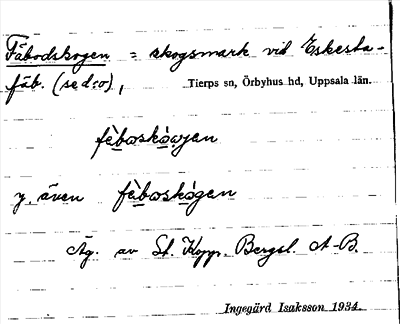 Fäbodskogen = skogsmark vid Eskesta-
fäb. (se d:o), Tierps sn, Örbyhus hd, Uppsala län.
fèboskòǥen
y. även fèboskògen
Äg. av St. Kopp. Bergsl. A-B.
Ingegärd Isaksson 1934.